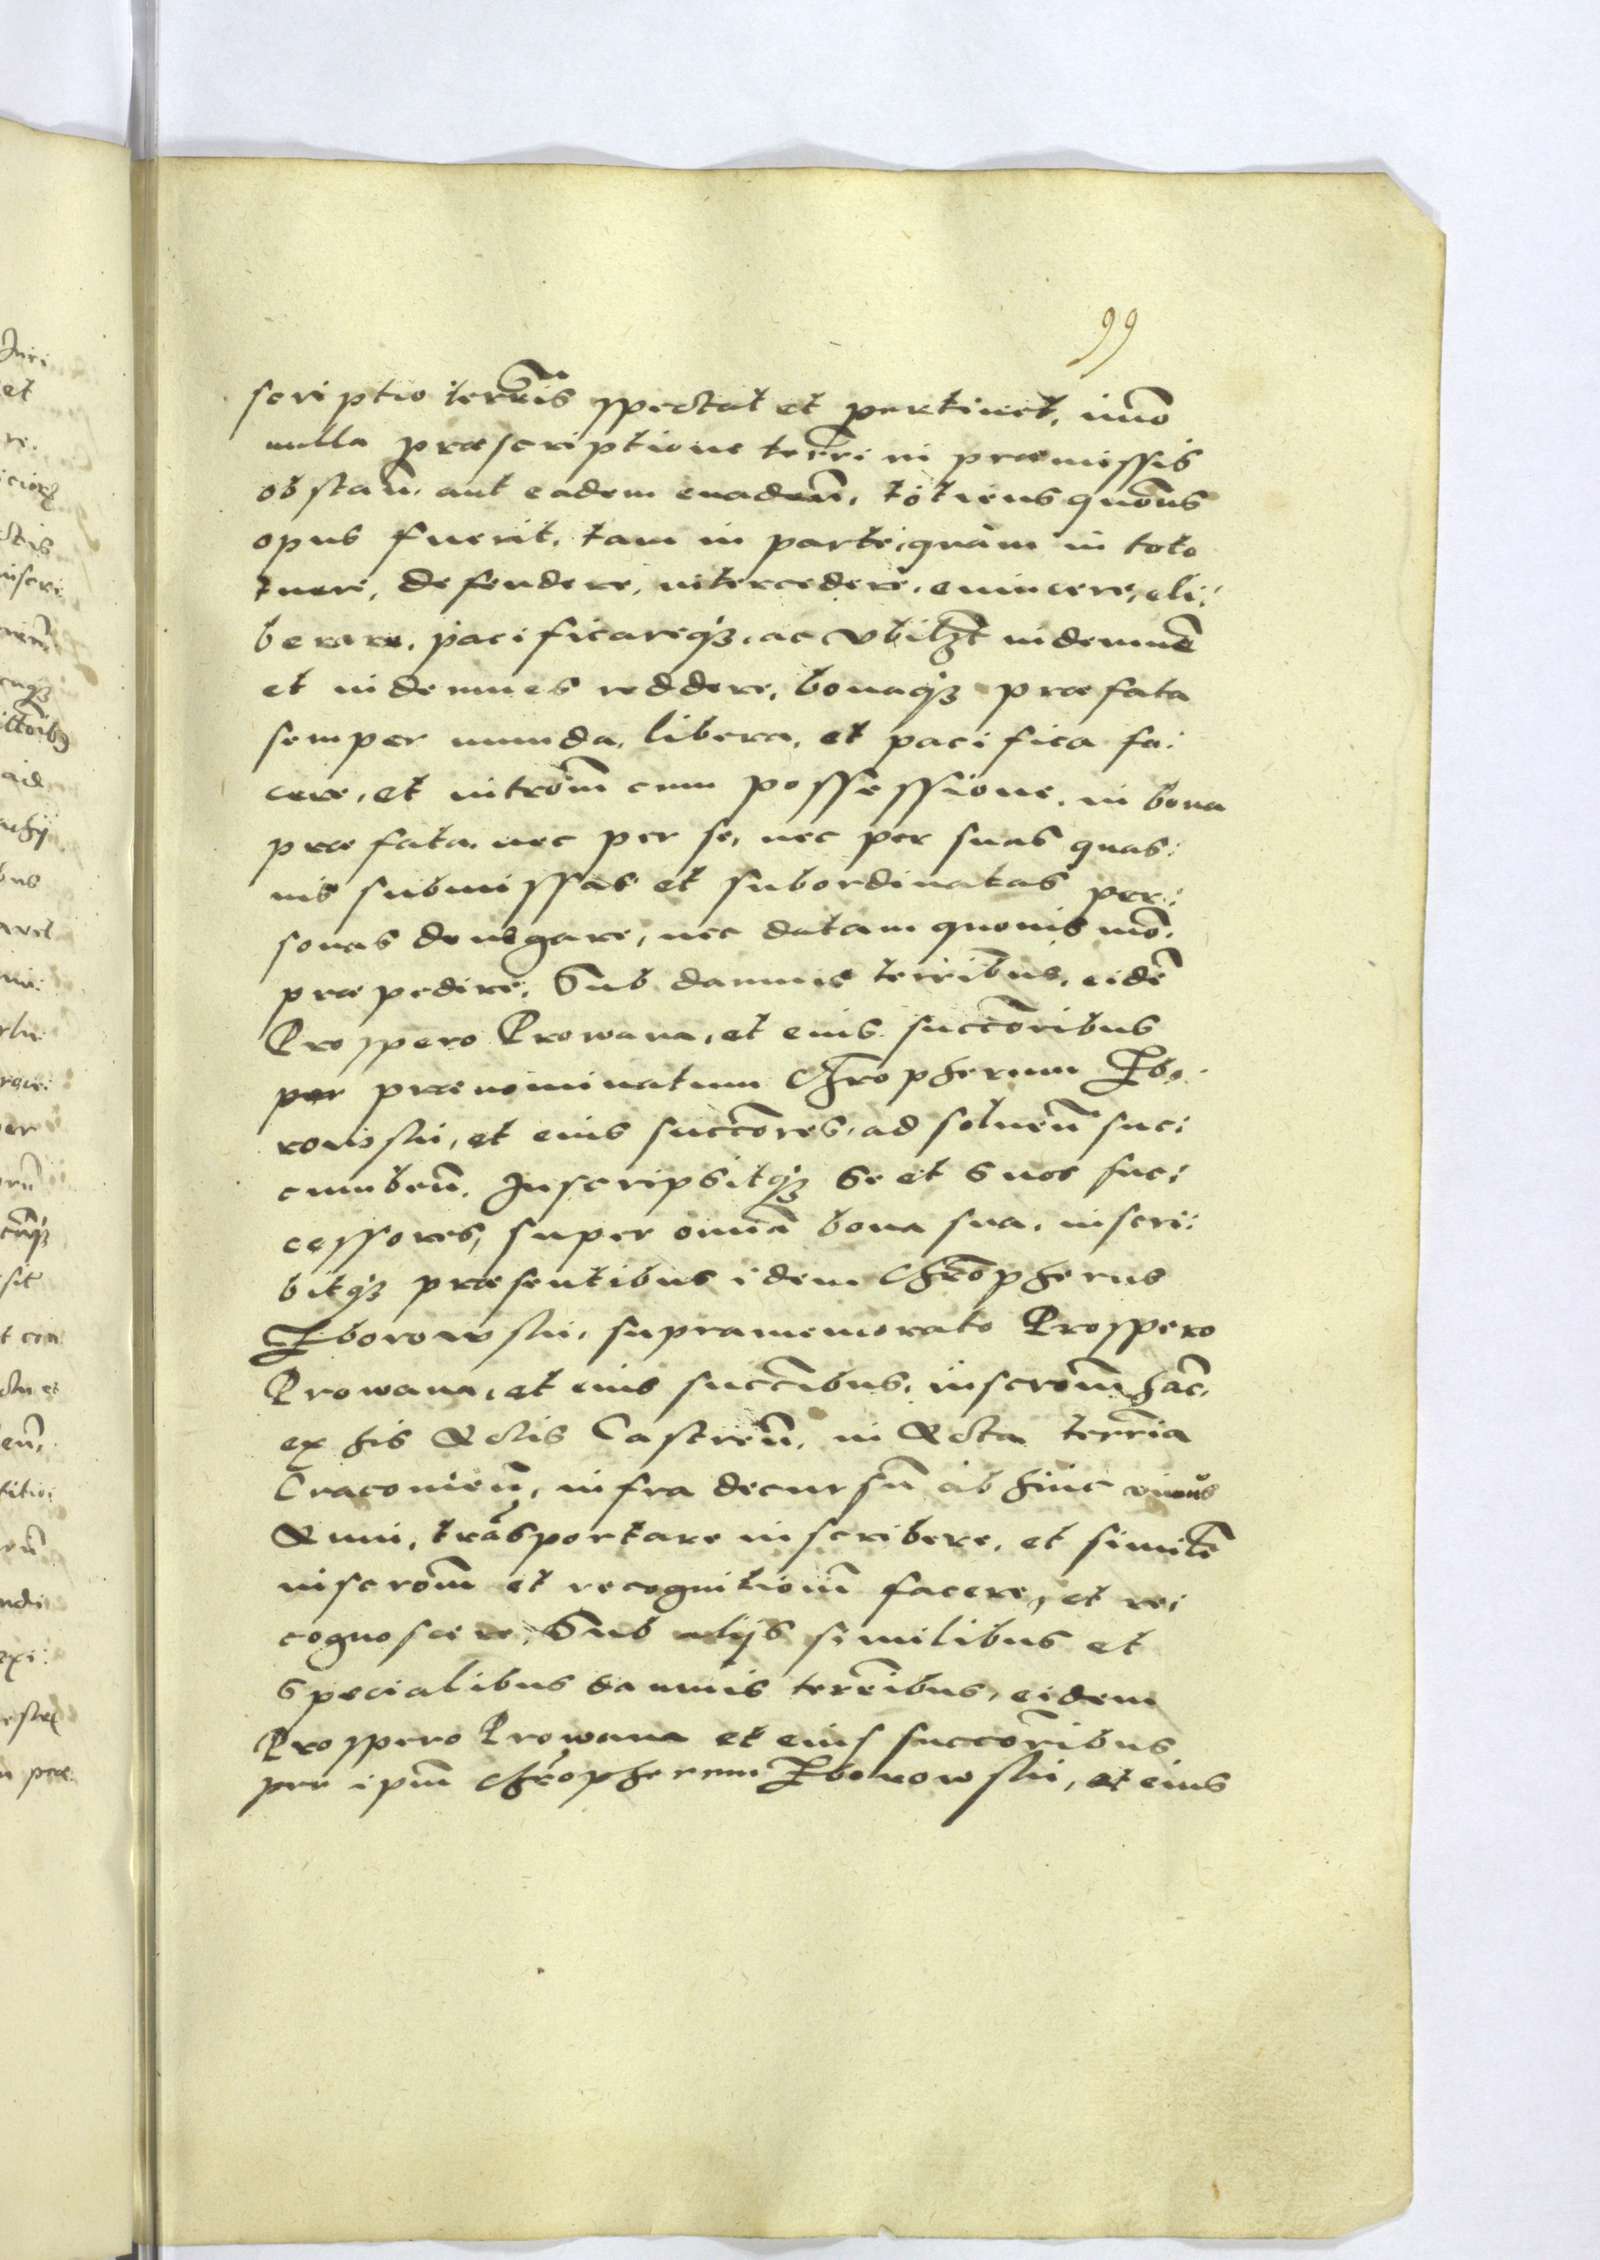 99
scriptio terrēis spectat et pertinet, im̄o
nulla præscriptione terrē in præmissis
obstan̄. aut eadem euaden̄. totiens quoēns
opus fuerit, tam in parte, quàm in toto
tueri, defendere, intercedere, euincere, eli:
berare, pacificareqꝫ, ac vbilꝫt indemnē
et indemnes reddere, bonaqꝫ præfata
semper munda, libera, et pacifica fa:
cere, et introm̄ cum possessione, in bona
præfata, nec per se, nec per suas quas:
uis submissas et subordinatas per:
sonas denegare, nec datam quouis mō.
præpedire. Sub damnis terrībus, eidē
Prospero Prowana, et eius succōribus
per prænominatum Chrōpherum Zbo:
rowski, et eius succōres, ad soluen̄ suc:
cumben̄. Inscripsitqꝫ se et suos suc:
cessores, super omīa bona sua, inscri:
bitqꝫ præsentibus idem Chrōpherus
Zborowski, supramemorato Prospero
Prowana, et eius succībus, inscrōm hāc,
ex his Actis Castren̄. in Acta terrīa
Cracouien̄, infra decursū ab hinc vnius
Anni, trāsportare inscribere, et similē
inscrōm et recognitiom̄ facere, et re:
cognoscere, Sub alijs similibus et
specialibus damnis terrēibus, eidem
Prospero Prowana et eius succōribus
per ipm̄ Chrōpherum Zborowski, et eius
Inri
et
re.